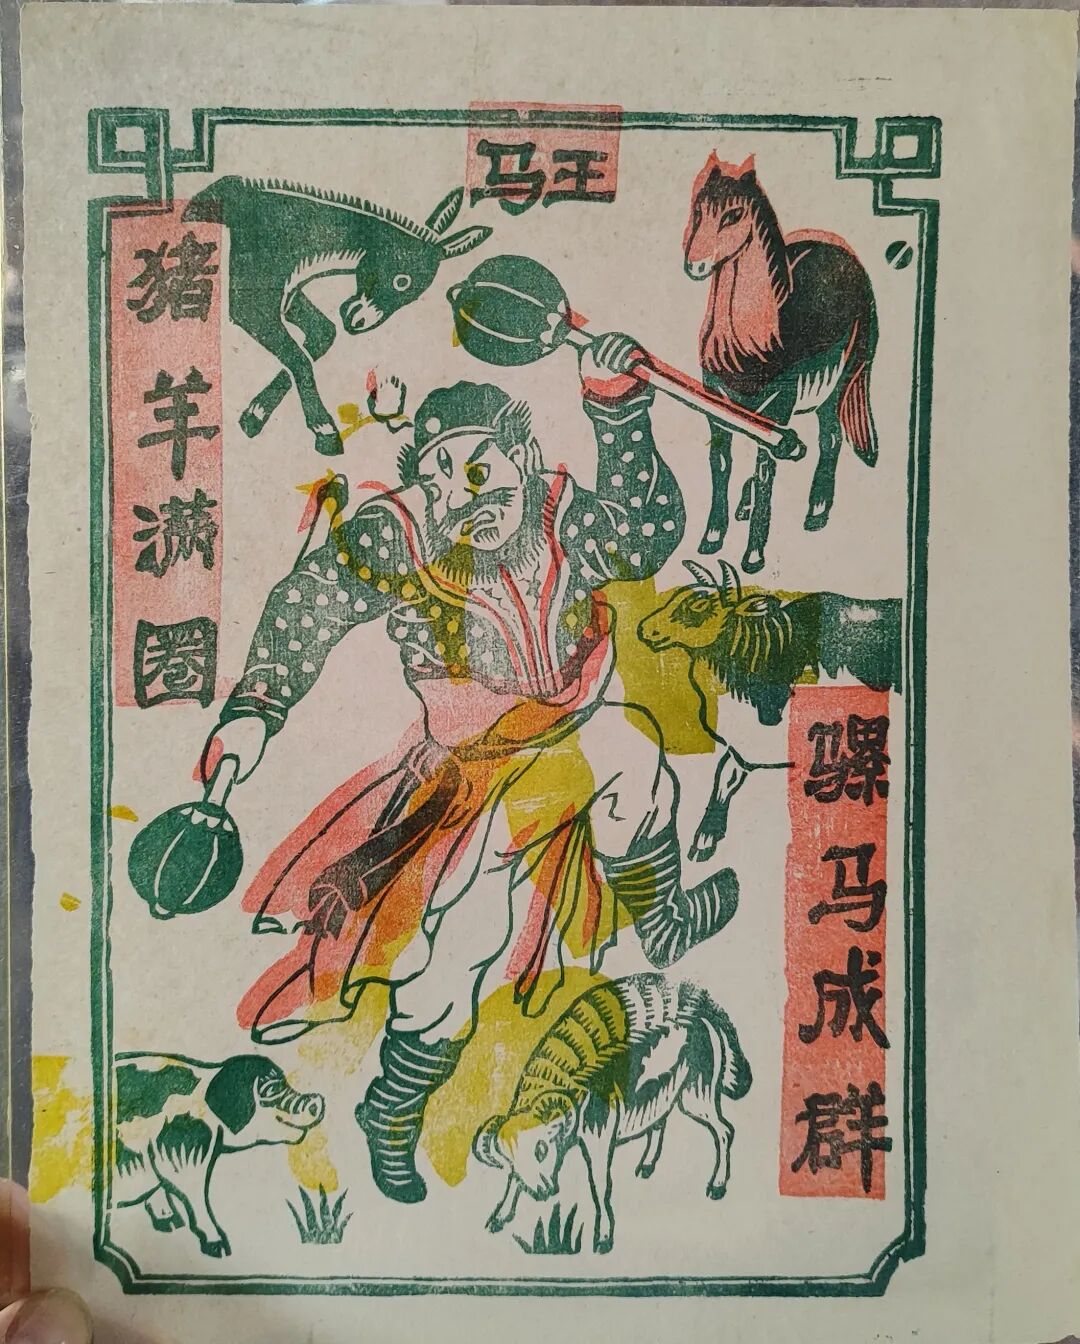 马王
骡马成群
猪羊满圈